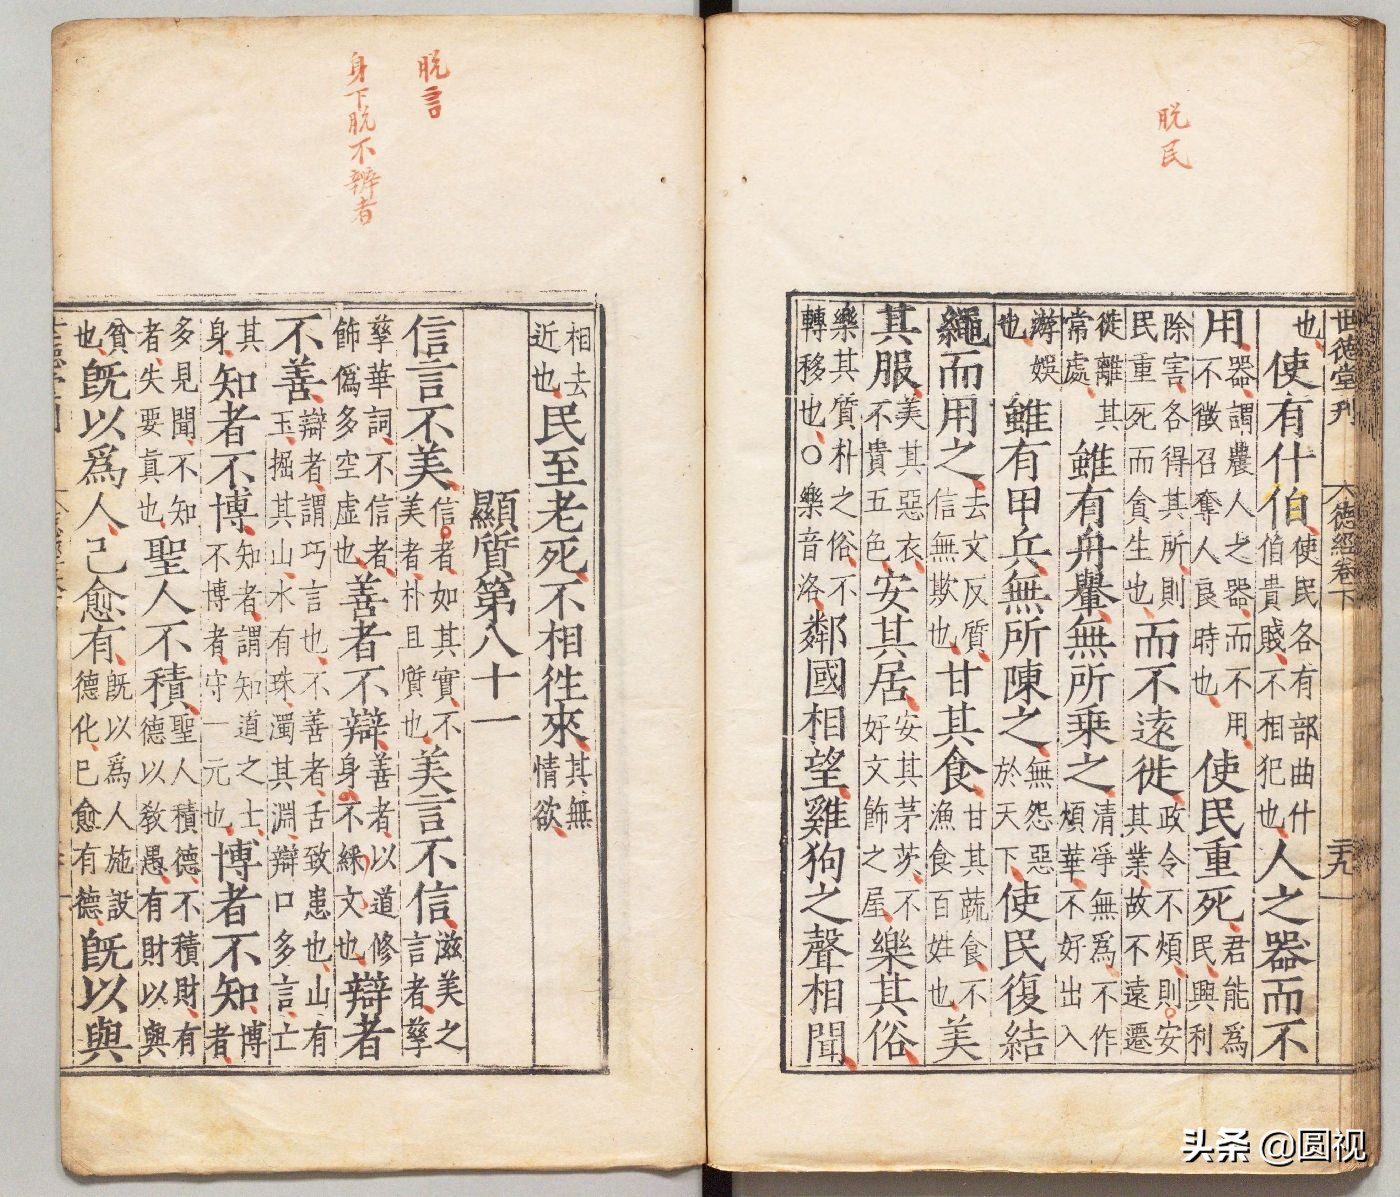 脱民
世德堂刋 德經卷下
也使有什伯使民各有部曲什伯貴賤不相犯也人之器而不
用器謂農人之器而不用不徵召奪人良時也使民重死君能為民興利
除害各得其所則民重死而貪生也而不遠徙政令不煩則安其業故不遠遷
徙離其常處雖有舟轝無所乗之清淨無為不作煩華不好出入
游娛也雖有甲兵無所陳之無怨惡於天下使民復結
繩而用之去文反質信無欺也甘其食甘其蔬食不漁食百姓也美
其服美其惡衣不貴五色安其居安其茅茨不好文飾之屋樂其俗
樂其質朴之俗不轉移也○樂音洛鄰國相望雞狗之聲相聞
脱言
身下脱不辨者
相去近也民至老死不相徃來其無情欲
顯質第八十一
信言不美信者如其實不美者朴且質也美言不信滋美之言者孳
孳華詞不信者飾偽多空虛也善者不辯善者以道修身不綵文也辯者
不善辯者謂巧言也不善者舌致患也山有玉掘其山水有珠濁其淵辯口多言亡
其身知者不博知者謂知道之士不博者守一元也博者不知博者
多見聞不知者失要真也聖人不積聖人積德不積財有德以敎愚有財以與
貧也旣以爲人己愈有旣以爲人施設德化巳愈有德旣以與
头条 @圆视